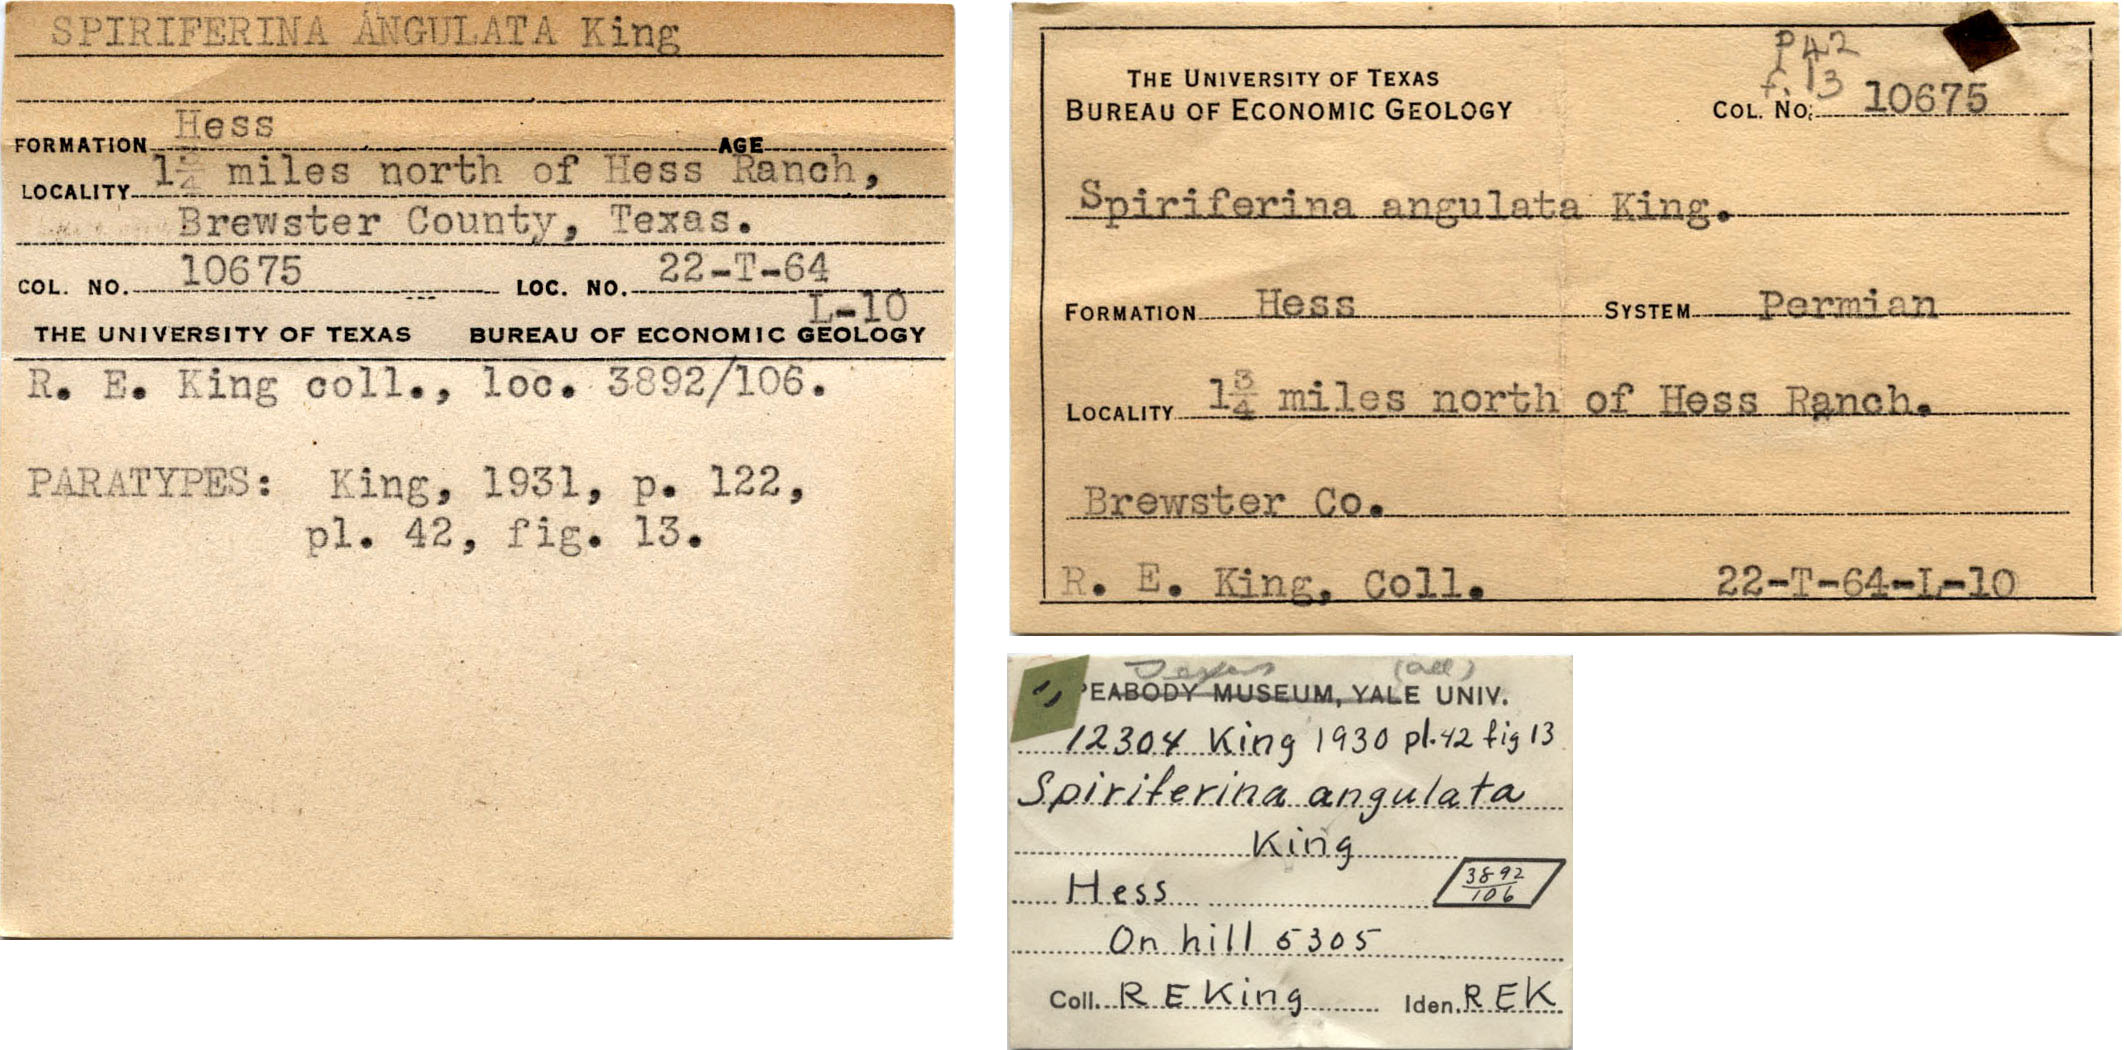 SPIRIFERINA ANGULATA King
Hess
FORMATION AGE
LOCALITY 1 3/4 miles north of Hess Ranch,
Brewster County, Texas.
COL. NO. 10675 LOC. NO. 22-T-64
L-10
THE UNIVERSITY OF TEXAS BUREAU OF ECONOMIC GEOLOGY
R. E. King coll., loc. 3892/106.
PARATYPES: King, 1931, p. 122,
pl. 42, fig. 13.
P42
f. 13
THE UNIVERSITY OF TEXAS
BUREAU OF ECONOMIC GEOLOGY COL. NO. 10675
Spiriferina angulata King.
FORMATION Hess SYSTEM Permian
LOCALITY 1 3/4 miles north of Hess Ranch.
Brewster Co.
R. E. King, Coll. 22-T-64-L-10
Texas (all)
PEABODY MUSEUM, YALE UNIV.
12304 King 1930 pl. 42 fig 13
Spiriferina angulata
King
Hess 3892
106
On hill 5305
Coll. R E King Iden. R E K